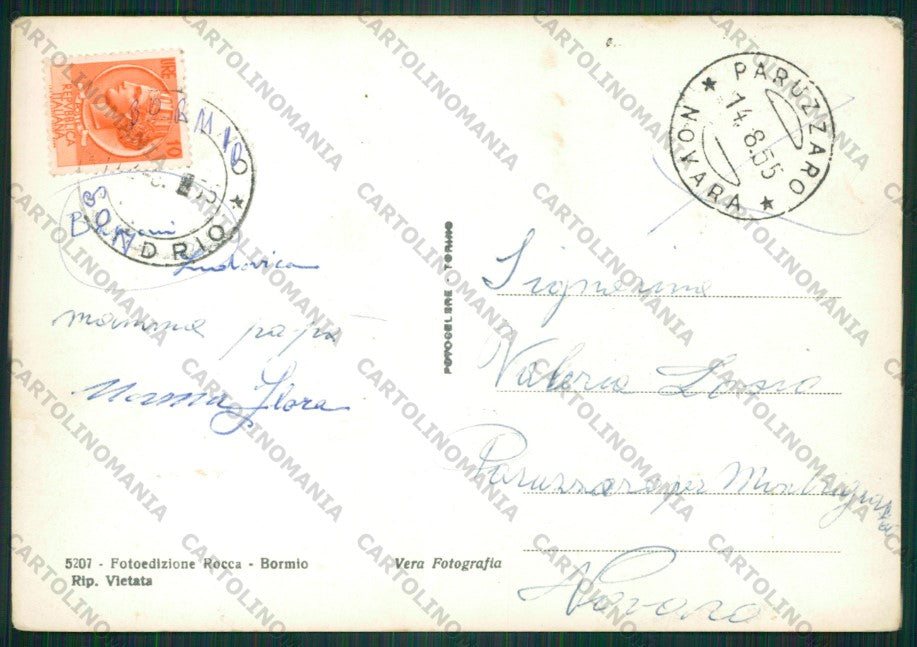 LIRE
REPUBBLICA
ITALIANA
10
DRIO ★
Ludovica
mamma papà
Mamma Flora
5207 - Fotoedizione Rocca - Bormio
Rip. Vietata
Vera Fotografia
FOTOCELERE - TORINO
★ PARUZZARO ★
NOVARA
14.8.55
Signorina
Valeria
Paruzzaro per
Novara
CARTOLINOMANIA